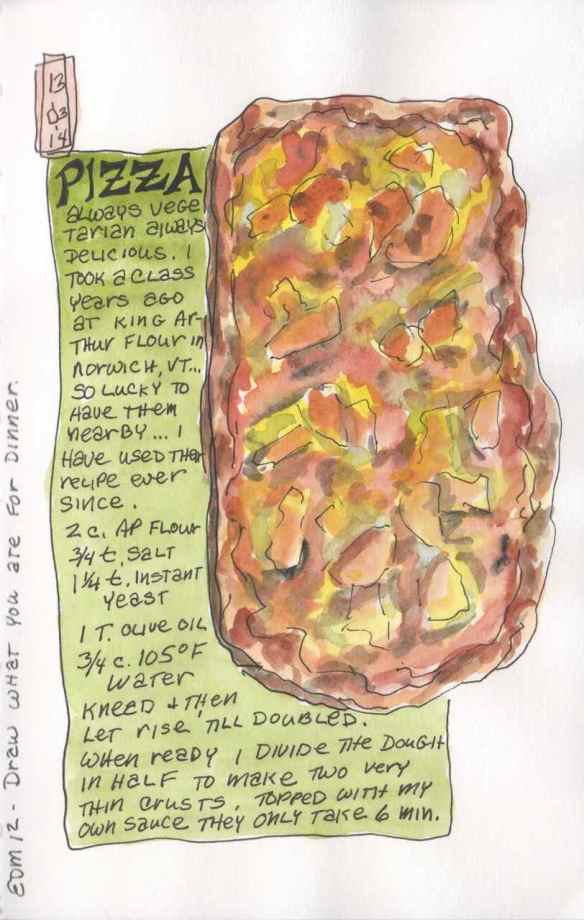 13
D3
14
PIZZA
ALWAYS VEGE
TARIAN ALWAYS
DELICIOUS. I
TOOK A CLASS
YEARS AGO
AT KING AR-
THUR FLOUR IN
NORWICH, VT...
SO LUCKY TO
HAVE THEM
NEARBY... I
HAVE USED THEIR
RECIPE EVER
SINCE.
2 C. AP FLOUR
3/4 t. SALT
1 1/4 t. INSTANT
YEAST
1 T. OLIVE OIL
3/4 C. 105°F
WATER
KNEED + THEN
LET RISE 'TILL DOUBLED.
WHEN READY I DIVIDE THE DOUGH
IN HALF TO MAKE TWO VERY
THIN CRUSTS. TOPPED WITH MY
OWN SAUCE THEY ONLY TAKE 6 MIN.
EDM 12 - DRAW WHAT YOU ATE FOR DINNER.